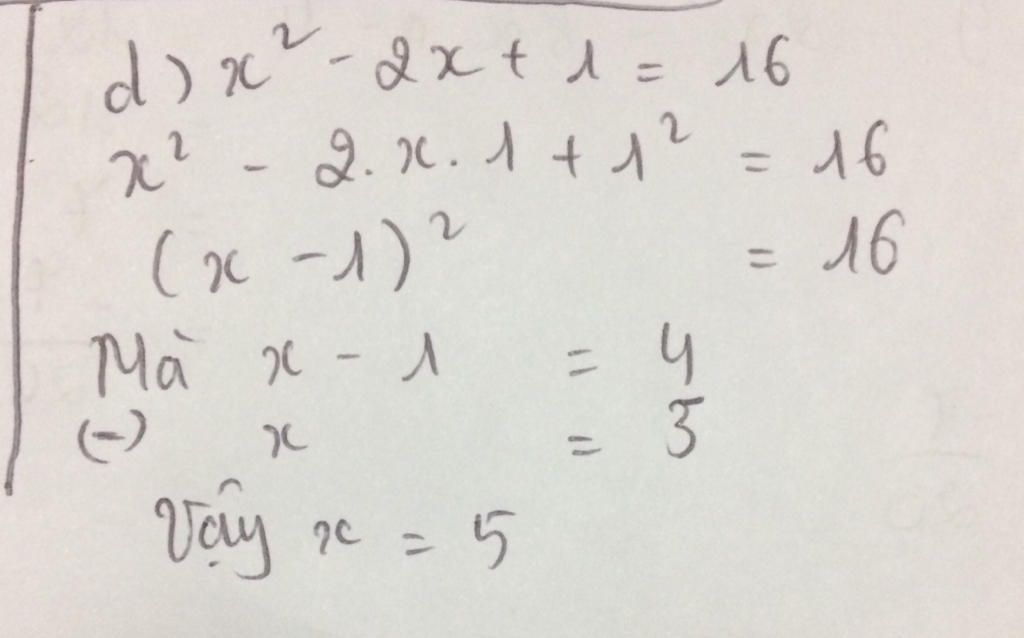 d) x² - 2x + 1 = 16
x² - 2.x.1 + 1² = 16
(x - 1)² = 16
Mà x - 1 = 4
(-) x = 5
Vậy x = 5